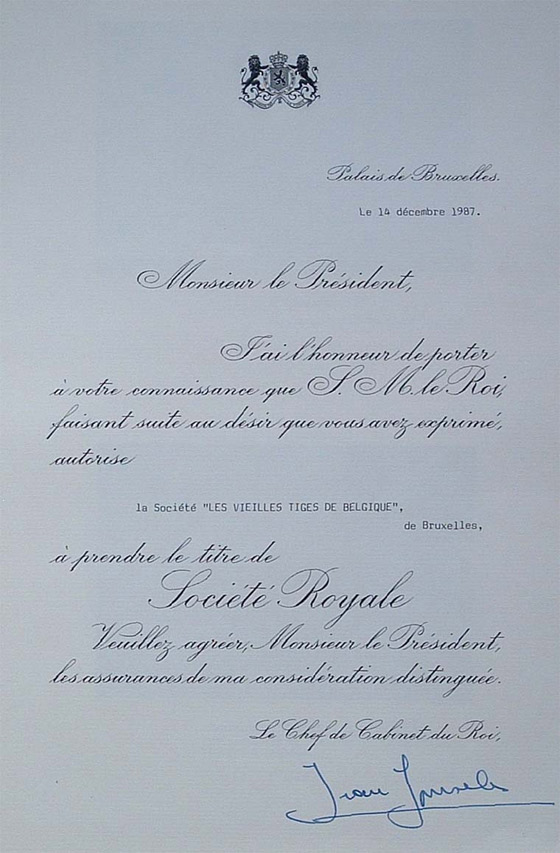 Palais de Bruxelles.
Le 14 décembre 1987.
Monsieur le Président,
J'ai l'honneur de porter
à votre connaissance que S. M. le Roi,
faisant suite au désir que vous avez exprimé,
autorise
la Société "LES VIEILLES TIGES DE BELGIQUE",
de Bruxelles,
à prendre le titre de
Société Royale
Veuillez agréer, Monsieur le Président,
les assurances de ma considération distinguée.
Le Chef de Cabinet du Roi,
Jean